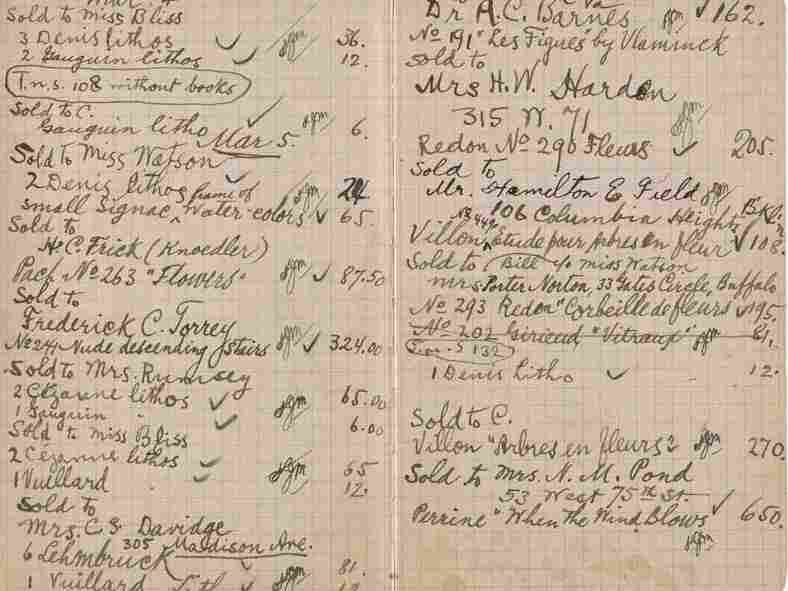 Mar 4
Sold to Miss Bliss
3 Denis lithos 36.
2 Gauguin lithos 12.
T.n.s. 108 without books
Sold to C.
Gauguin litho 6.
Mar 5.
Sold to Miss Watson
2 Denis lithos 24
frame of
small Signac water-colors 65.
Sold to
H.C. Frick (Knoedler)
Pach No 263 "Flowers" 87.50
Sold to
Frederick C. Torrey
No 241 Nude descending Stairs 324.00
Sold to Mrs. Rumsey
2 Cézanne lithos 65.00
1 Gauguin " 6.00
Sold to Miss Bliss
2 Cezanne lithos 65
1 Vuillard " 12.
Sold to
Mrs. C. S Davidge
305 Maddison Ave.
6 Lehmbruck 81.
1 Vuillard Lith 12
Dr A.C. Barnes 162.
No 191 "Les Figues" by Vlaminck
sold to
Mrs H.W. Harden
315 W. 71
Redon No 290 Fleurs 205.
Sold to
Mr. Hamilton E Field
106 Columbia Heights Bkl.n
No 449
Villon, étude pour Arbres en fleur 108.
Sold to (Bill c/o Miss Watson
Mrs Porter Norton, 33 Gates Circle, Buffalo
No 293 Redon "Corbeille de fleurs 195.
No 202 Girieud "Vitraux" 81.
T.n.s 132
1 Denis litho 12.
Sold to C.
Villon "Arbres en fleurs" 270.
Sold to Mrs. N. M. Pond
53 West 75th St.
Perrine "When the Wind Blows 650.